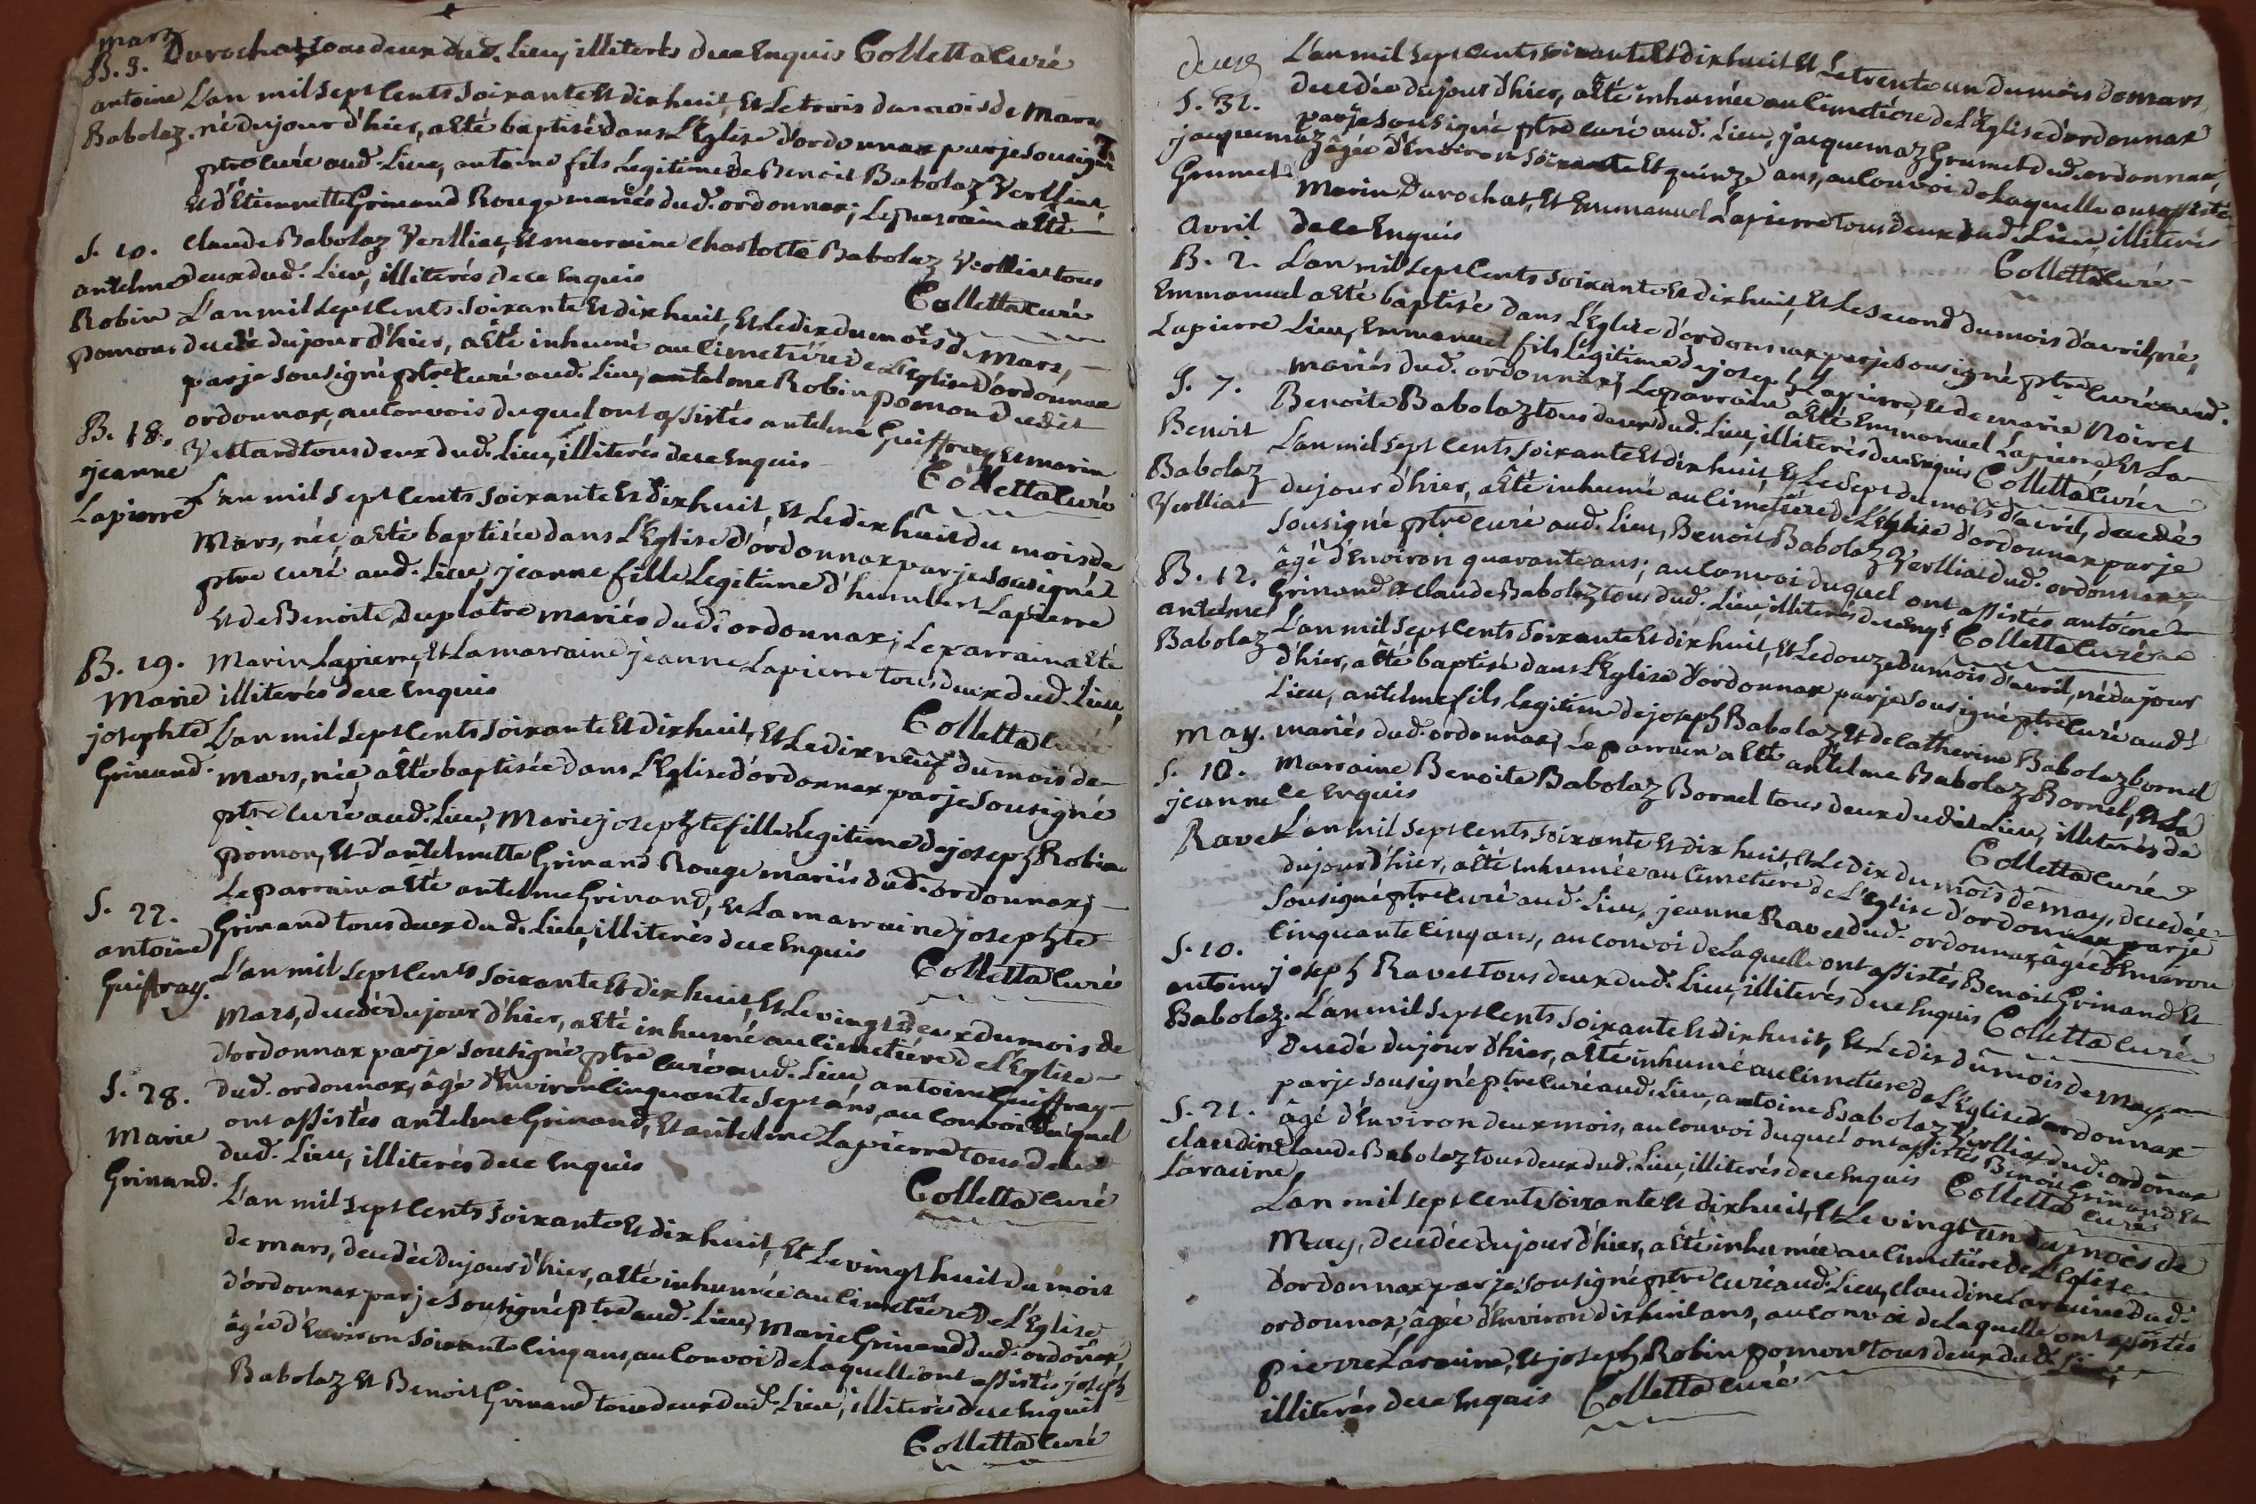 mars
Durochat tous deux dud. Lieu, illiterés dece Enquis Colletta Curé
B. 3.
antoine
Babolaz.
L'an mil sept Cents soixante Et dix huit, Et Le trois du mois de Mars
né du jour d'hier, a été baptisé dans L'Eglise d'ordonnax par je sousigné
ptre Curé aud. Lieu, antoine fils Legitime de Benoit Babolaz Verlliat
Et d'Etiennette Grinand Rouge mariés dud. ordonnax; Le parrain a été
claude Babolaz Verlliat, Et marraine charlotte Babolaz Verlliat tous
deux dud. Lieu, illiterés dece Enquis
Colletta Curé
S. 10.
antelme
Robin
pomon
L'an mil sept Cents soixante Et dix huit, Et Le dix du mois de Mars,
decedé du jour d'hier, a été inhumé au Cimetiére de L'Eglise d'ordonnax
par je sousigné ptre Curé aud. Lieu, antelme Robin pomon dudit
ordonnax, au Convois duquel ont assistés antelme Guiffray Et marin
Vittard tous deux dud. Lieu, illiterés dece Enquis
Colletta Curé
B. 18.
jeanne
Lapierre
L'an mil sept Cents soixante Et dix huit, Et Le dix huit du mois de
Mars, née, a été baptisée dans L'Eglise d'ordonnax par je sousigné
ptre Curé aud. Lieu, jeanne fille Legitime d'humbert Lapierre
Et de Benoite Duplatre mariés dud. ordonnax; Le parrain a été
Marin Lapierre, Et La marraine jeanne Lapierre tous deux dud. Lieu,
illiterés dece Enquis
Colletta Curé
B. 19.
Marie
josephte
Grinand.
L'an mil sept Cents soixante Et dix huit, Et Le dix neuf du mois de
Mars, née, a été baptisée dans L'Eglise d'ordonnax par je sousigné
ptre Curé aud. Lieu, Marie josephte fille Legitime de joseph Robin
pomon, Et d'antelmette Grinand Rouge mariés dud. ordonnax;
Le parrain a été antelme Grinand, Et La marraine josephte
Grinand tous deux dud. Lieu, illiterés dece Enquis
Colletta Curé
S. 22.
antoine
Guiffray.
L'an mil sept Cents soixante Et dix huit, Et Le vingt deux du mois de
Mars, decedé du jour d'hier, a été inhumé au Cimetiére de L'Eglise
d'ordonnax par je sousigné ptre Curé aud. Lieu, antoine Guiffray
dud. ordonnax, âgé d'Environ Cinquante sept ans, au Convoi duquel
ont assistés antelme Grinand, Et antelme Lapierre tous deux
dud. Lieu, illiterés dece Enquis
Colletta Curé
S. 28.
Marie
Grinand.
L'an mil sept Cents soixante Et dix huit, Et Le vingt huit du mois
de mars, decedée du jour d'hier, a été inhumée au Cimetiére de L'Eglise
d'ordonnax par je sousigné ptre aud. Lieu, Marie Grinand dud. ordonax,
âgée d'Environ soixante Cinq ans, au Convoi de Laquelle ont assistés joseph
Babolaz Et Benoit Grinand tous deux dud. Lieu, illiterés dece Enquis
Colletta Curé
S. 31.
jaquemaz
Grumet
L'an mil sept Cents soixante Et dix huit Et Le trente un du mois de mars
decedée du jour d'hier, a été inhumée au Cimetiére de L'Eglise d'ordonnax
par je sousigné ptre Curé aud. Lieu, jaquemaz Grumet dud. ordonnax,
âgée d'Environ soixante Et quinze ans, au Convoi de Laquelle ont assistés
Marin Durochat, Et Emmanuel Lapierre tous deux dud. Lieu, illiterés
dece Enquis
Colletta Curé
Avril
B. 2.
Emmanuel
Lapierre
L'an mil sept Cents soixante Et dix huit, Et Le second du mois d'avril, né,
a été baptisé dans L'Eglise d'ordonnax par je sousigné ptre Curé aud.
Lieu, Emmanuel fils Legitime de joseph Lapierre, Et de marie Noiret
mariés dud. ordonnax; Le parrain a été Emmanuel Lapierre Et La
Benoite Babolaz tous deux dud. Lieu, illiterés dece Enquis Colletta Curé
S. 7.
Benoit
Babolaz
Verlliat
L'an mil sept Cents soixante Et dix huit, Et Le sept du mois d'avril, decedé
du jour d'hier, a été inhumé au Cimétiére de L'Eglise d'ordonnax par je
sousigné ptre Curé aud. Lieu, Benoit Babolaz Verlliat dud. ordonnax,
âgé d'Environ quarante ans; au Convoi duquel ont assistés antoine
Grinand Et claude Babolaz tous dud. Lieu, illiterés dece Enq.s Colletta Curé
B. 12.
antelme
Babolaz
L'an mil sept Cents soixante Et dix huit, Et Le douze du mois d'avril, né du jour
d'hier, a été baptisé dans L'Eglise d'ordonnax par je sousigné ptre Curé aud.
Lieu, antelme fils Legitime de joseph Babolaz, Et de Catherine Babolaz bornel
mariés dud. ordonnax, Le parrain a été antelme Babolaz Bornel, Et La
Marraine Benoite Babolaz Bornel tous deux dudit Lieu, illiterés de
ce Enquis
Colletta Curé
May.
S. 10.
jeanne
Ravet
L'an mil sept Cents soixante Et dix huit, Et Le dix du mois de may, decedée
du jour d'hier, a été inhumée au Cimetiére de L'Eglise d'ordonnax par je
sousigné ptre Curé aud. Lieu, jeanne Ravet dud. ordonnax âgée d'Environ
Cinquante Cinq ans, au convoi de Laquelle ont assistés Benoit Grinand Et
joseph Ravet tous deux dud. Lieu, illiterés dece Enquis Colletta Curé
S. 10.
antoine
Babolaz.
L'an mil sept Cents soixante Et dix huit, Et Le dix du mois de may,
decedé du jour d'hier, a été inhumé au Cimetiere de L'Eglise d'ordonnax
par je sousigné ptre Curé aud. Lieu, antoine Babolaz Verlliat dud. ordonax
âgé d'Environ deux mois, au Convoi duquel ont assistés Benoit Grinand Et
claude Babolaz tous deux dud. Lieu, illiterés dece Enquis Colletta Curé
S. 21.
claudine
Laracine
L'an mil sept Cents soixante Et dix huit, Et Le vingt un du mois de
May, decedée du jour d'hier, a été inhumée au Cimetiére de L'Eglise
d'ordonnax par je sousigné ptre Curé aud. Lieu, claudine Laracine dud.
ordonnax, âgée d'Environ dix huit ans, au Convoi de Laquelle ont assistés
pierre Laracine, Et joseph Robin pomon tous deux dud. Lieu,
illiterés dece Enquis Colletta Curé